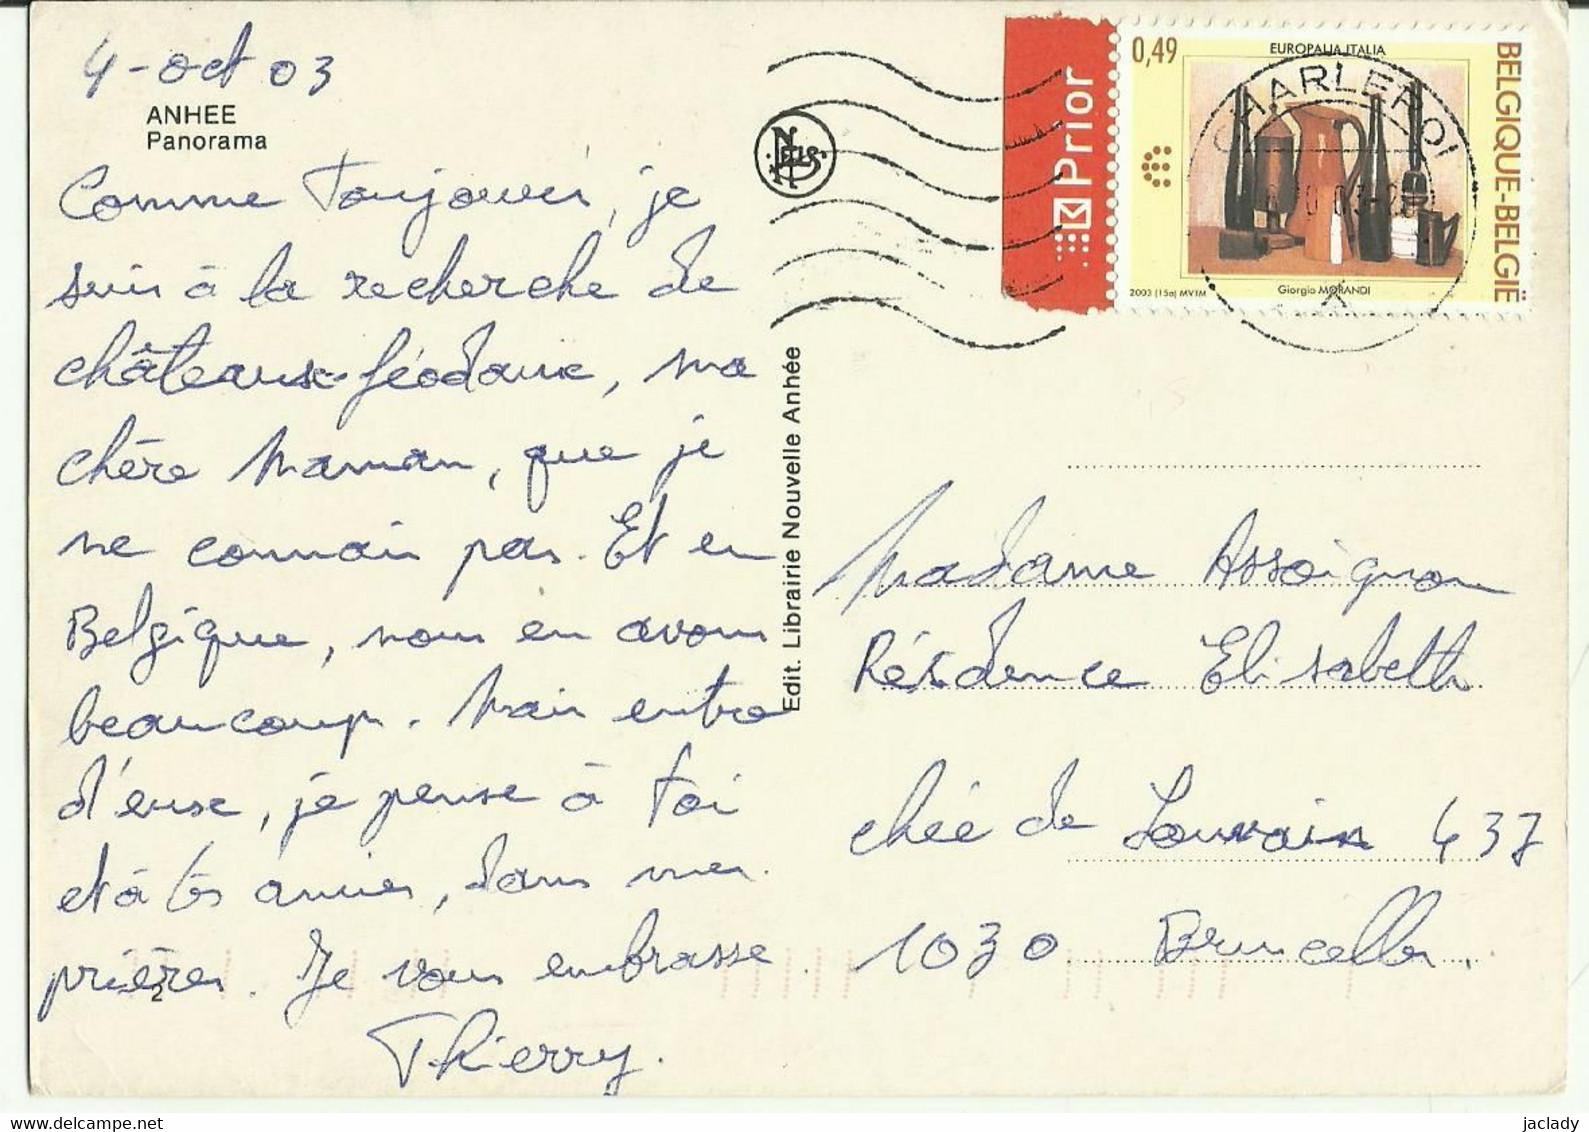 4-oct 03
ANHEE
Panorama
Comme toujours, je
suis à la recherche de
châteaux-féodaux, ma
chère Maman, que je
ne connais pas. Et en
Belgique, nous en avons
beaucoup. Mais entre
d'eux, je pense à toi
et à tes amies, dans mes
prières. Je vous embrasse
Thierry.
2
Edit. Librairie Nouvelle Anhée
NELS
Prior
0,49
EUROPALIA ITALIA
BELGIQUE-BELGIË
2003 (15a) MVTM
Giorgio MORANDI
CHARLEROI
Madame Assoignon
Résidence Elisabeth
chée de Louvain 437
1030 Bruxelles.
jaclady